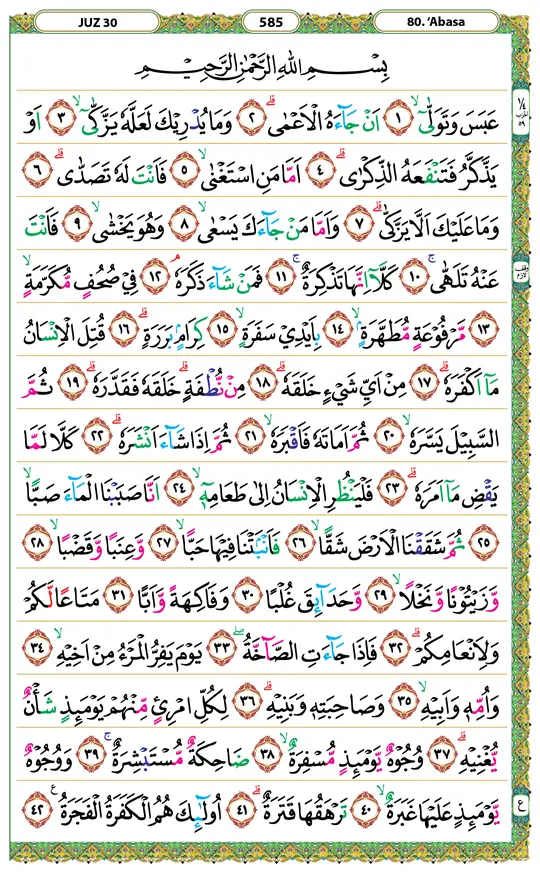 JUZ 30 585 80. ‘Abasa
بِسْمِ اللهِ الرَّحْمٰنِ الرَّحِيْمِ
عَبَسَ وَتَوَلّٰىٓۙ ١ اَنْ جَاۤءَهُ الْاَعْمٰىۗ ٢ وَمَا يُدْرِيْكَ لَعَلَّهٗ يَزَّكّٰىٓۙ ٣ اَوْ
يَذَّكَّرُ فَتَنْفَعَهُ الذِّكْرٰىۗ ٤ اَمَّا مَنِ اسْتَغْنٰىۙ ٥ فَاَنْتَ لَهٗ تَصَدّٰىۗ ٦
وَمَا عَلَيْكَ اَلَّا يَزَّكّٰىۗ ٧ وَاَمَّا مَنْ جَاۤءَكَ يَسْعٰىۙ ٨ وَهُوَ يَخْشٰىۙ ٩ فَاَنْتَ
عَنْهُ تَلَهّٰىۚ ١٠ كَلَّآ اِنَّهَا تَذْكِرَةٌۚ ١١ فَمَنْ شَاۤءَ ذَكَرَهٗۘ ١٢ فِيْ صُحُفٍ مُّكَرَّمَةٍۙ
١٣ مَّرْفُوْعَةٍ مُّطَهَّرَةٍۢۙ ١٤ بِاَيْدِيْ سَفَرَةٍۙ ١٥ كِرَامٍۢ بَرَرَةٍۗ ١٦ قُتِلَ الْاِنْسَانُ
مَآ اَكْفَرَهٗۗ ١٧ مِنْ اَيِّ شَيْءٍ خَلَقَهٗۗ ١٨ مِنْ نُّطْفَةٍۗ خَلَقَهٗ فَقَدَّرَهٗۗ ١٩ ثُمَّ
السَّبِيْلَ يَسَّرَهٗۙ ٢٠ ثُمَّ اَمَاتَهٗ فَاَقْبَرَهٗۙ ٢١ ثُمَّ اِذَا شَاۤءَ اَنْشَرَهٗۗ ٢٢ كَلَّا لَمَّا
يَقْضِ مَآ اَمَرَهٗۗ ٢٣ فَلْيَنْظُرِ الْاِنْسَانُ اِلٰى طَعَامِهٖٓۙ ٢٤ اَنَّا صَبَبْنَا الْمَاۤءَ صَبًّاۙ
٢٥ ثُمَّ شَقَقْنَا الْاَرْضَ شَقًّاۙ ٢٦ فَاَنْۢبَتْنَا فِيْهَا حَبًّاۙ ٢٧ وَّعِنَبًا وَّقَضْبًاۙ ٢٨
وَّزَيْتُوْنًا وَّنَخْلًاۙ ٢٩ وَّحَدَاۤىِٕقَ غُلْبًا ٣٠ وَفَاكِهَةً وَّاَبًّا ٣١ مَتَاعًا لَّكُمْ
وَلِاَنْعَامِكُمْۗ ٣٢ فَاِذَا جَاۤءَتِ الصَّاۤخَّةُۖ ٣٣ يَوْمَ يَفِرُّ الْمَرْءُ مِنْ اَخِيْهِۙ ٣٤
وَاُمِّهٖ وَاَبِيْهِۙ ٣٥ وَصَاحِبَتِهٖ وَبَنِيْهِۗ ٣٦ لِكُلِّ امْرِئٍ مِّنْهُمْ يَوْمَىِٕذٍ شَأْنٌ
يُّغْنِيْهِۗ ٣٧ وُجُوْهٌ يَّوْمَىِٕذٍ مُّسْفِرَةٌۙ ٣٨ ضَاحِكَةٌ مُّسْتَبْشِرَةٌۚ ٣٩ وَوُجُوْهٌ
يَّوْمَىِٕذٍ عَلَيْهَا غَبَرَةٌۙ ٤٠ تَرْهَقُهَا قَتَرَةٌۗ ٤١ اُولٰۤىِٕكَ هُمُ الْكَفَرَةُ الْفَجَرَةُ ࣖ ٤٢
١/٤
الحزب
٥٩
وقف
لازم
ع